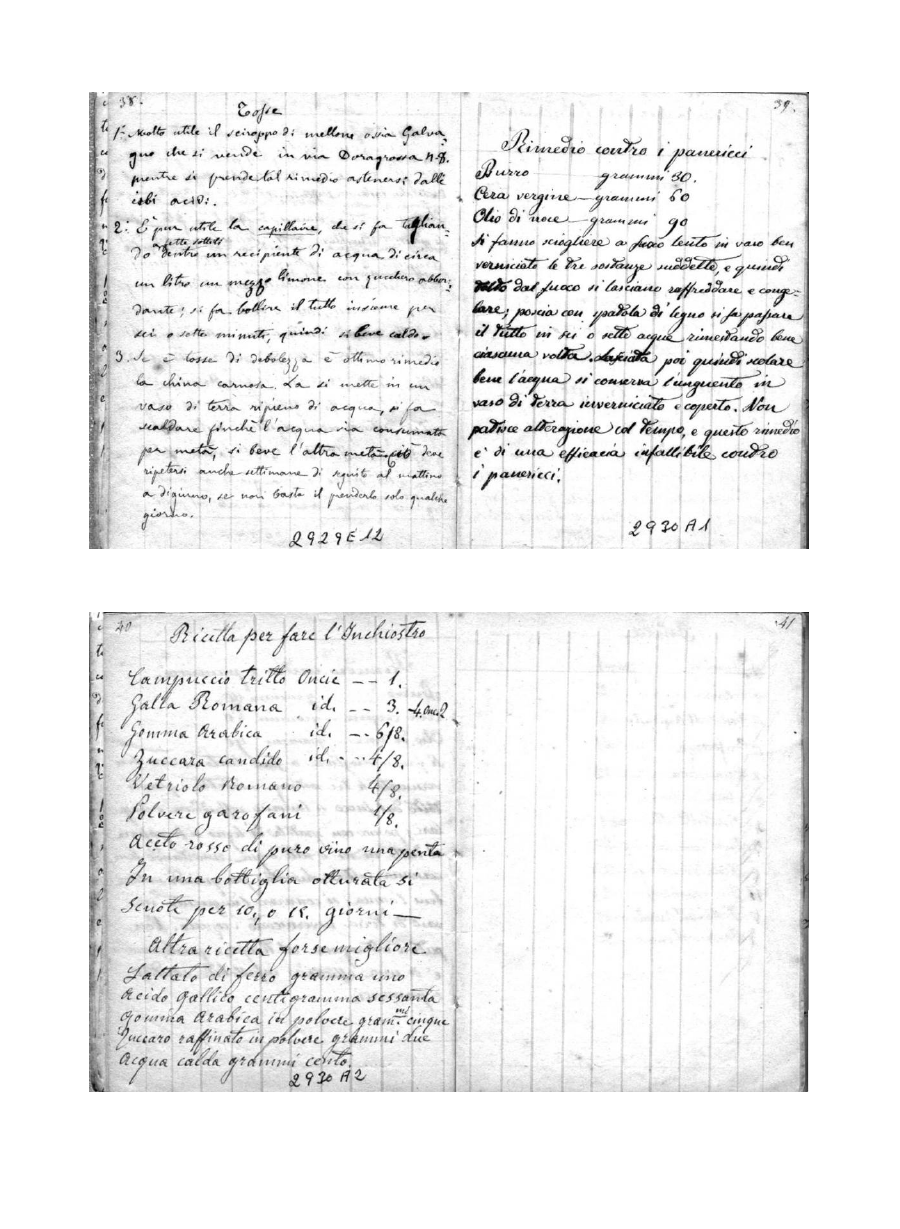 38.
Tosse
1. Molto utile il sciroppo di mellone ossia Galva-
gno che si vende in via Doragrossa n. 8.
mentre si prende tal rimedio astenersi dalli
cibi acidi.
2. È pur utile la capillaire, che si fa taglian-
a fette sottili
do dentro un recipiente di acqua di circa
un litro un mezzo limone con zucchero abbon-
dante; si fa bollire il tutto insieme per
sei o sette minuti, quindi si beve caldo.
3. Se è tosse di debolezza è ottimo rimedio
la china carnosa. La si mette in un
vaso di terra ripieno di acqua, si fa
scaldare finchè l'acqua sia consumata
per metà, si beve l'altra metà. Ciò deve
ripetersi anche settimane di seguito al mattino
a digiuno, se non basta il prenderlo solo qualche
giorno.
2929E12
39.
Rimedio contro i panericci
Burro grammi 30.
Cera vergine grammi 60
Olio di noce grammi 90
Si fanno sciogliere a fuoco lento in vaso ben
verniciato le tre sostanze suddette, e quindi
dal fuoco si lasciano raffreddare e conge-
lare; poscia con spatola di legno si fa passare
il tutto in sei o sette acque rimestando bene
ciascuna volta. Lasciata poi quindi scolare
bene l'acqua si conserva l'unguento in
vaso di terra inverniciato e coperto. Non
patisce alterazione col tempo, e questo rimedio
e' di una efficacia infallibile contro
i panericci.
2930A1
40
Ricetta per fare l'Inchiostro
Campuccio tritto Oncie -- 1.
Galla Romana id. -- 3. -4. Once 2
Gomma Arabica id. -- 6/8.
Zuccara candido id. -- 4/8.
Vetriolo Romano 4/8.
Polvere garofani 1/8.
Aceto rosso di puro vino una penta
In una bottiglia otturata si
Scuote per 10, o 15. giorni—
Altra ricetta forse migliore
Lattato di ferro gramma uno
Acido gallico centigramma sessanta
mi
Gomma Arabica in polvere gram. cinque
Zuccaro raffinato in polvere grammi due
Acqua calda grammi cento.
2930A2
41